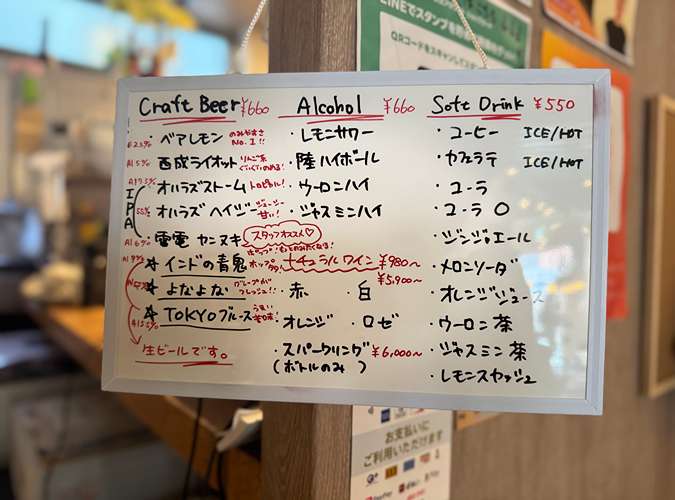 LINEでスタンプを
QRコードをスキャンして
Craft Beer ¥660
・ベアレモン のみやすさ No.1!!
Al 5% ・西成ライオット りんご系
・オハラズストーム トロピカル!
IPA
5.5% ・オハラズ ヘイジー ジューシー 甘い!
Al 6% 電電 ヤンヌキ スタッフオススメ♡
☆ インドの青鬼 ホップ
☆ よなよな フレッシュ!!
☆ TOKYOブルース うまい
生ビールです。
Alcohol ¥660
・レモンサワー
・陸ハイボール
・ウーロンハイ
・ジャスミンハイ
ナチュラルワイン ¥980〜
¥5,900〜
・赤 ・白
オレンジ ・ロゼ
・スパークリング ¥6,000〜
(ボトルのみ)
Soft Drink ¥550
・コーヒー ICE/HOT
・カフェラテ ICE/HOT
・コーラ
・コーラ 0
・ジンジャエール
・メロンソーダ
・オレンジジュース
・ウーロン茶
・ジャスミン茶
・レモンスカッシュ
お支払いに
ご利用いただけます